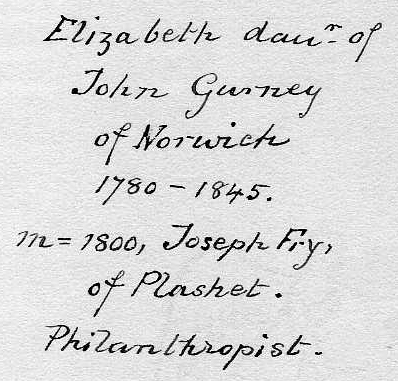 Elizabeth daur. of
John Gurney
of Norwich
1780 - 1845.
m = 1800, Joseph Fry,
of Plashet.
Philanthropist.